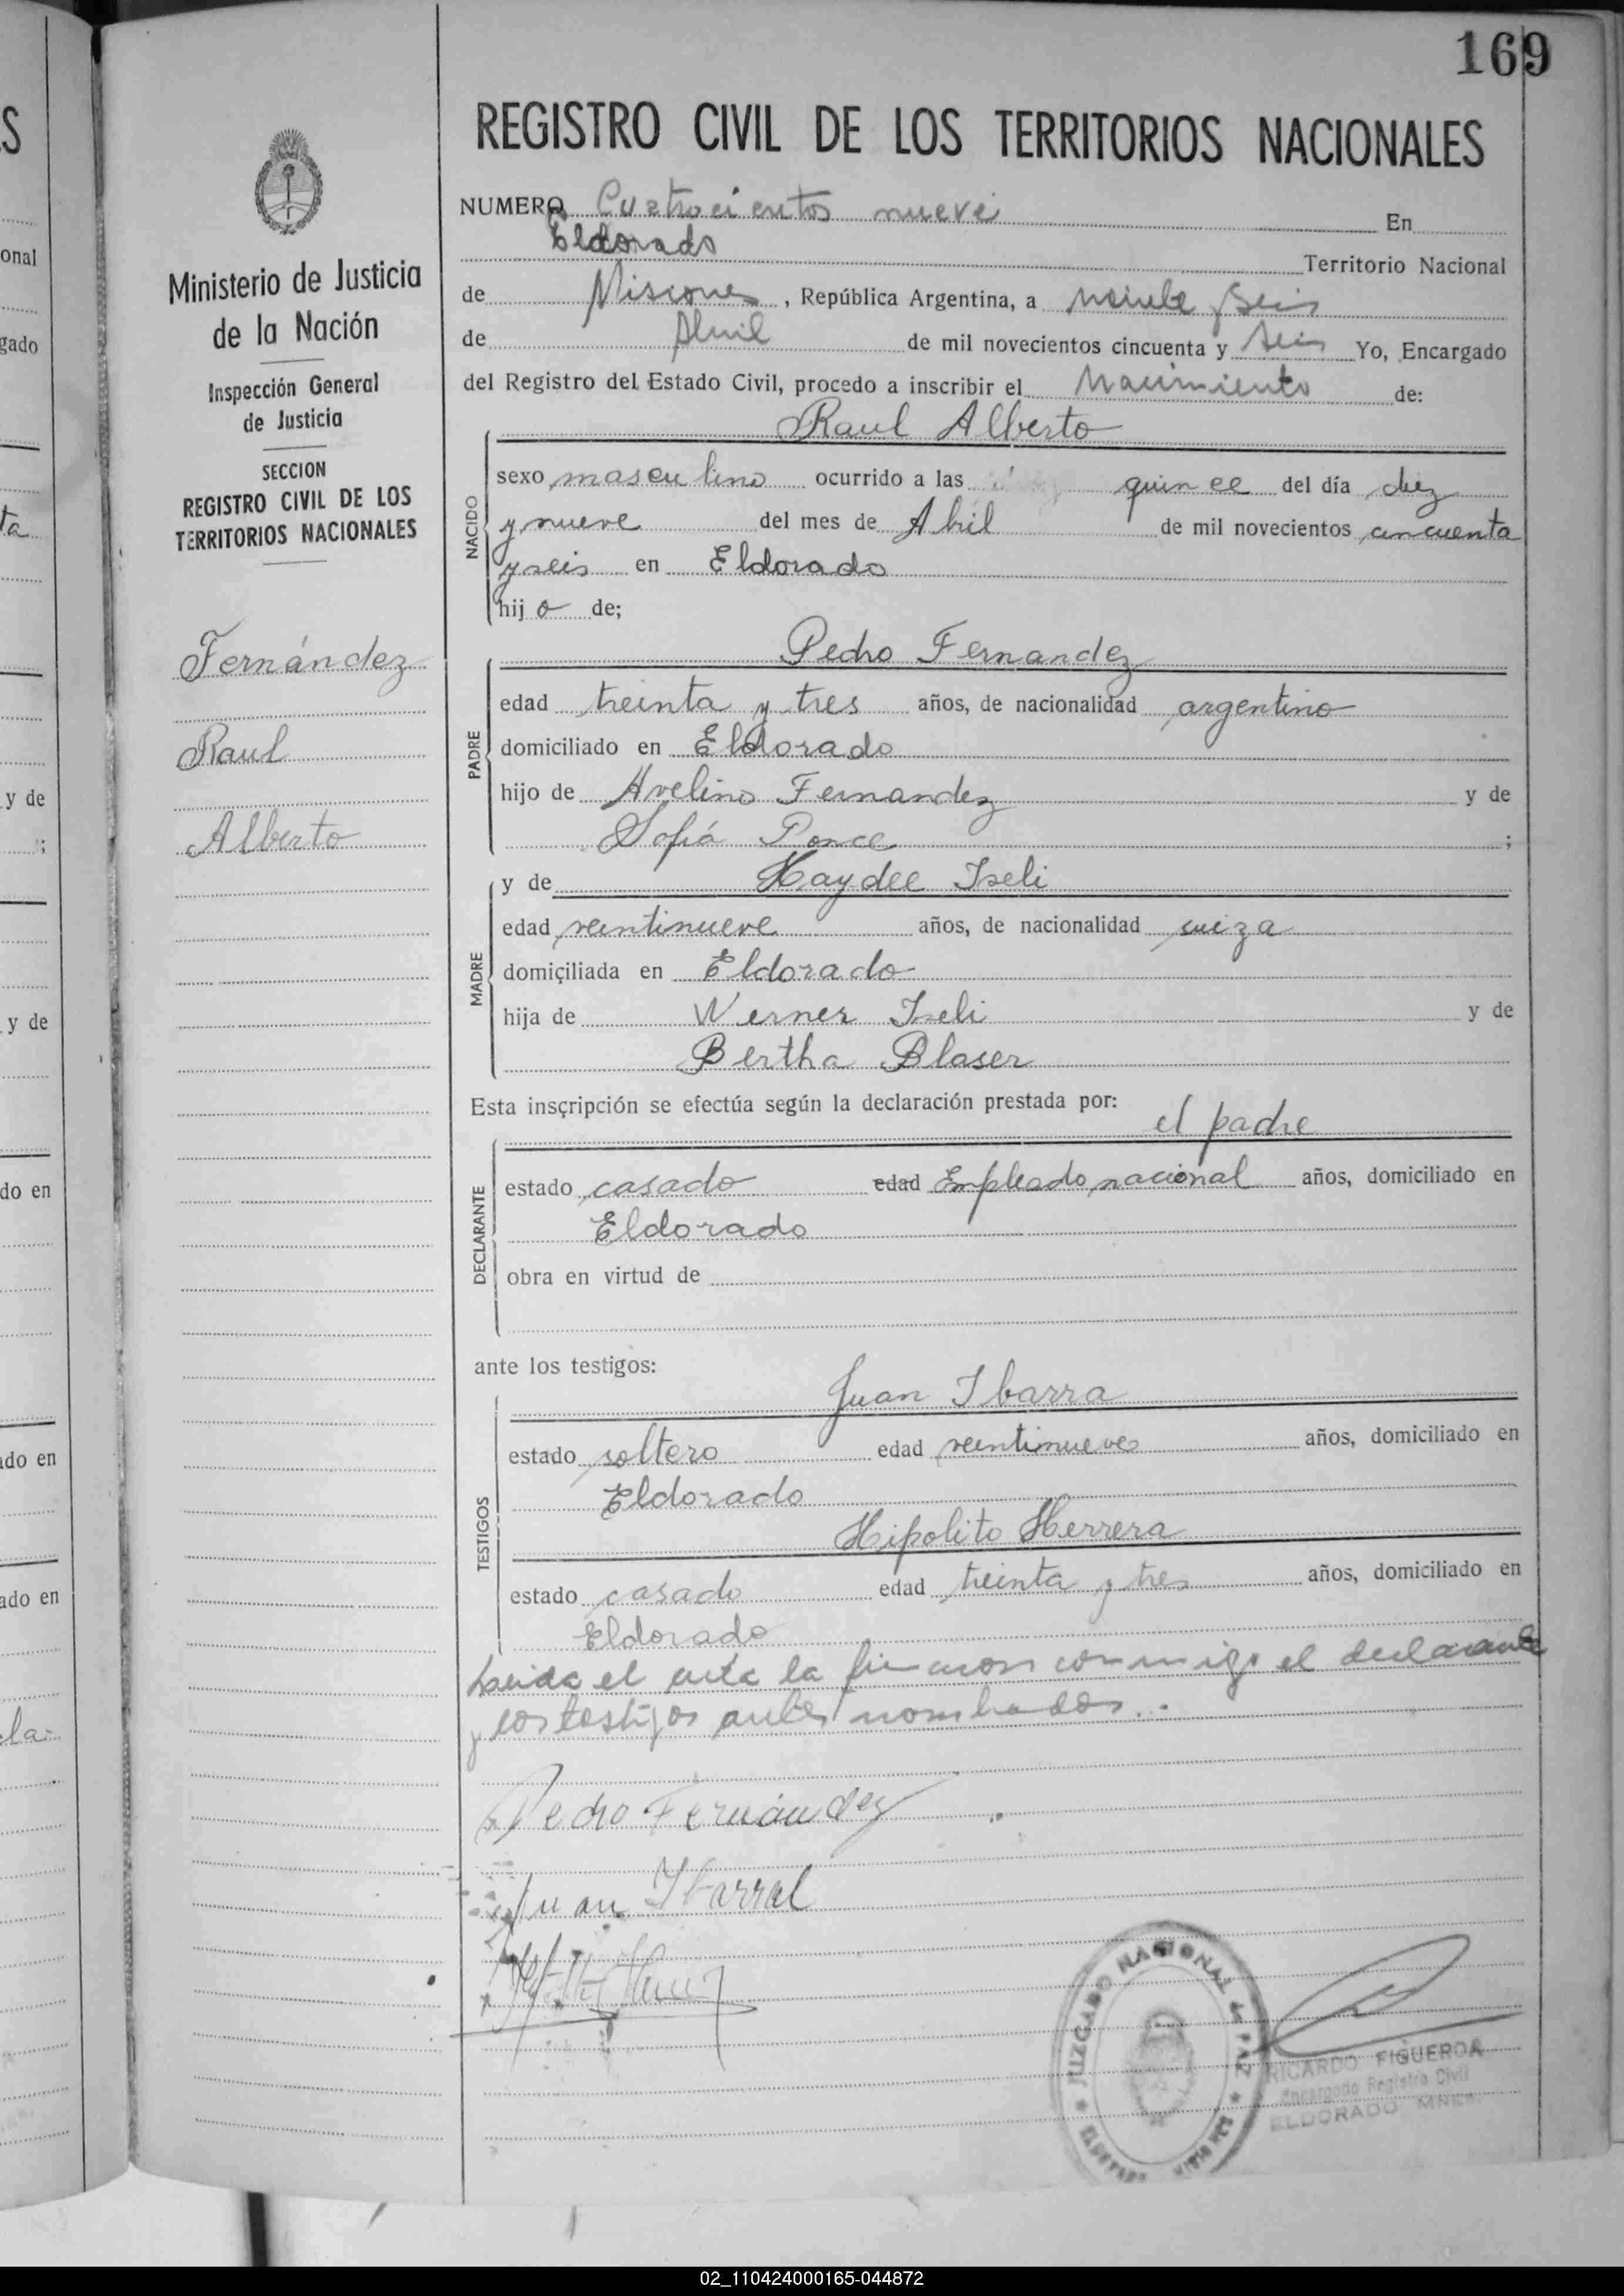 169
REGISTRO CIVIL DE LOS TERRITORIOS NACIONALES
Ministerio de Justicia
de la Nación
Inspección General
de Justicia
SECCION
REGISTRO CIVIL DE LOS
TERRITORIOS NACIONALES
Fernández
Raul
Alberto
NUMERO Cuatrocientos nueve En
Eldorado Territorio Nacional
de Misiones, República Argentina, a veinte y seis
de Abril de mil novecientos cincuenta y seis Yo, Encargado
del Registro del Estado Civil, procedo a inscribir el Nacimiento de:
Raul Alberto
NACIDO
sexo masculino ocurrido a las quince del día diez
y nueve del mes de Abril de mil novecientos cincuenta
y seis en Eldorado
hijo de;
Pedro Fernandez
PADRE
edad treinta y tres años, de nacionalidad argentino
domiciliado en Eldorado
hijo de Avelino Fernandez y de
Sofiá Ponce ;
y de Haydee Iseli
MADRE
edad veintinueve años, de nacionalidad suiza
domiciliada en Eldorado
hija de Werner Iseli y de
Bertha Blaser
Esta inscripción se efectúa según la declaración prestada por:
el padre
DECLARANTE
estado casado edad Empleado nacional años, domiciliado en
Eldorado
obra en virtud de
ante los testigos:
Juan Ibarra
TESTIGOS
estado soltero edad veintinueve años, domiciliado en
Eldorado
Hipolito Herrera
estado casado edad treinta y tres años, domiciliado en
Eldorado
Leida el acta la firmaron conmigo el declarante
y los testigos antes nombrados..
Pedro Fernández
Juan Ibarra
JUZGADO NACIONAL de PAZ
ELDORADO MISIONES
RICARDO FIGUEROA
Encargado Registro Civil
ELDORADO MNES.
S
onal
gado
ta
y de
;
y de
do en
ado en
ado en
la
02_110424000165-044872